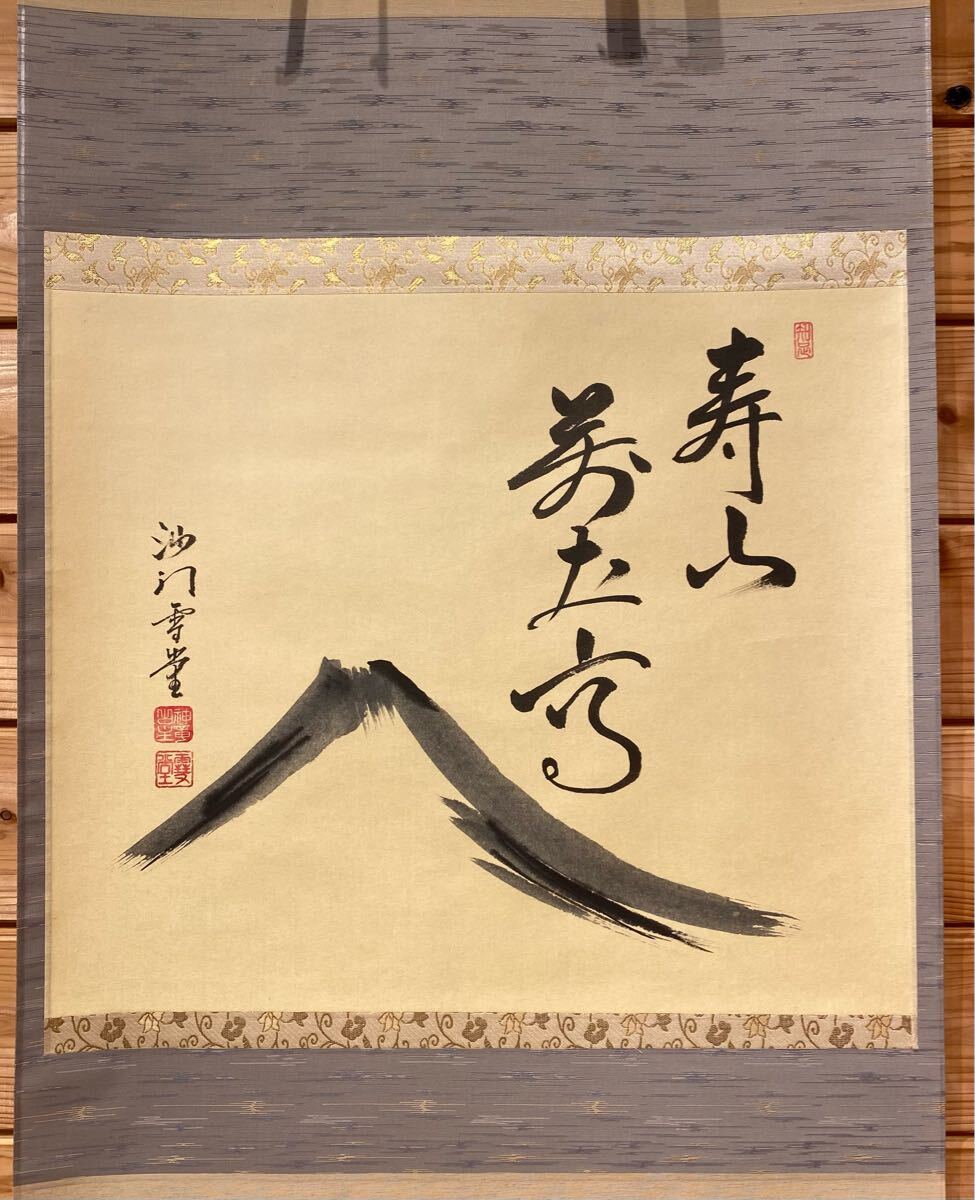 寿山
萬丈高
沙門雪堂